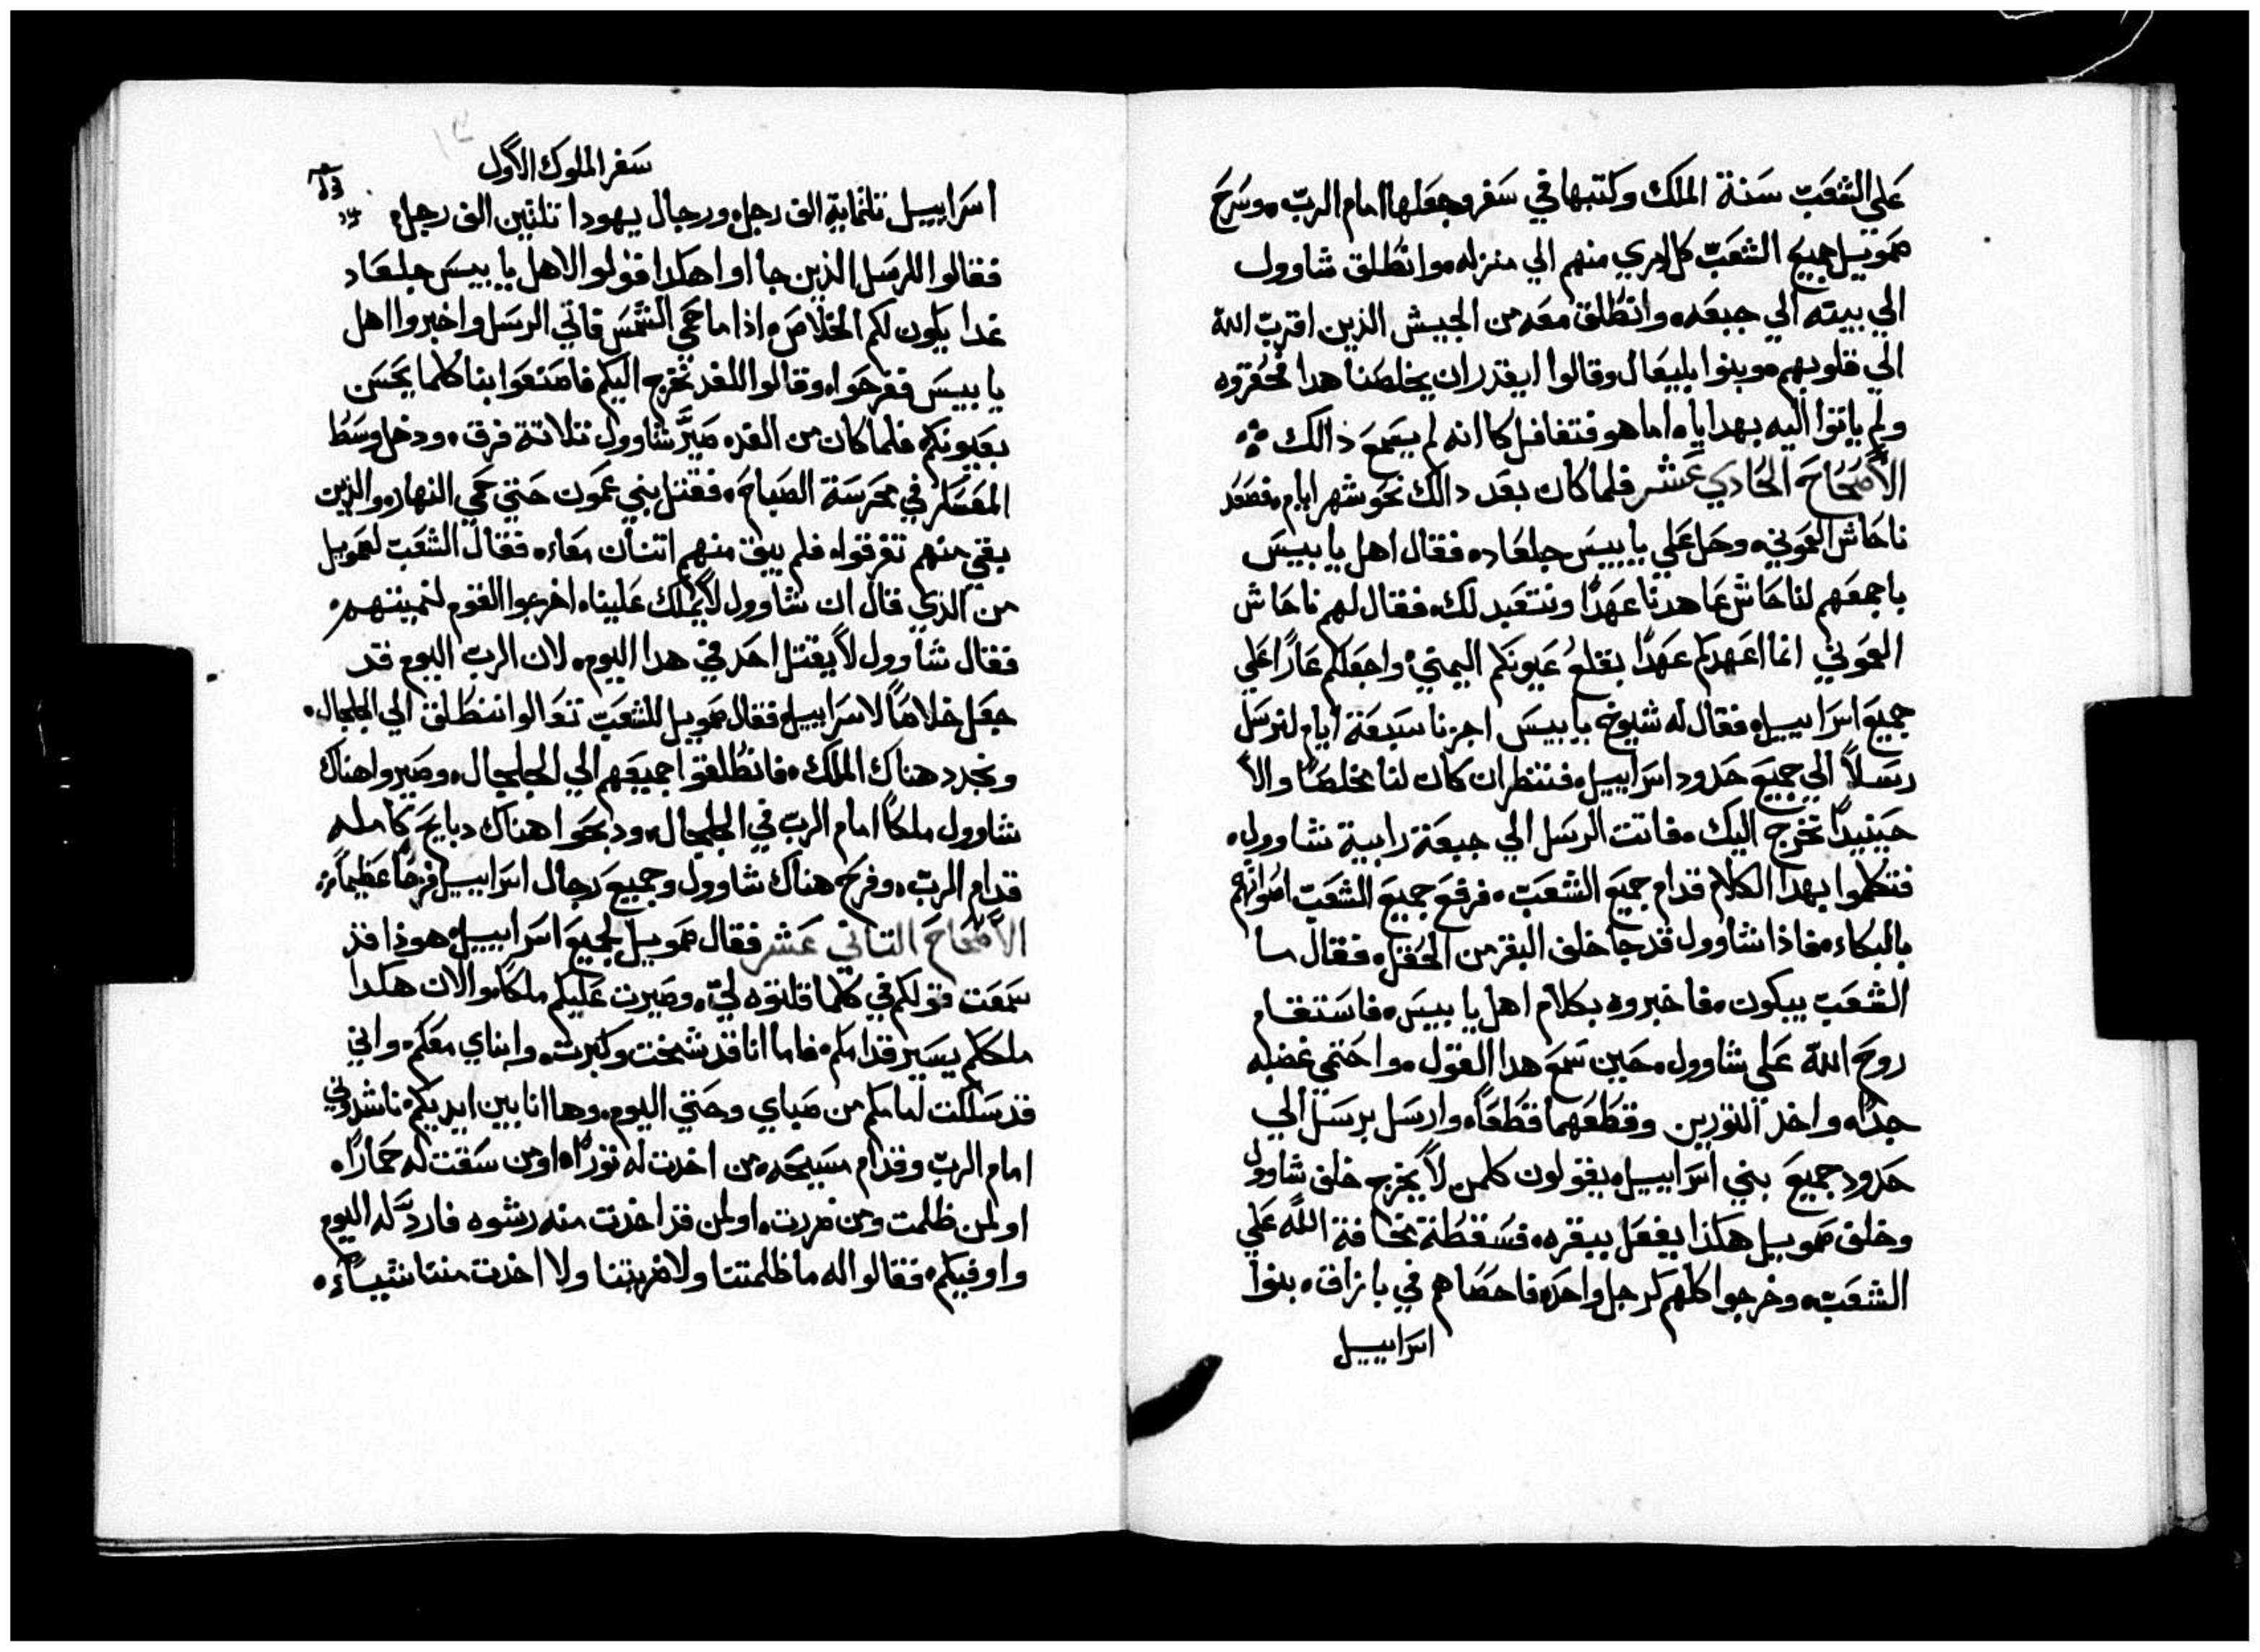 علي الشعب سنة الملك وكتبها في سفر وجعلها امام الرب. وسرح
صمويل جميع الشعب كل امري منهم الي منزله. وانطلق شاوول
الي بيته الي جبعه. وانطلق معه من الجيش الذين اقترب الله
الي قلوبهم. وبنوا بليعال وقالوا ايقدر ان يخلصنا هدا فحقروه
ولم ياتوا اليه بهدايا. اما هو فتغافل كاانه لم يسمع ذالك
الأصحاح الحادي عشر فلما كان بعد دالك نحو شهر ايام. فصعد
ناحاش العموني. وحل علي يابييس جلعاد. فقال اهل يابيس
باجمعهم لناحاش عاهدنا عهدًا ونتعبد لك. فقال لهم ناحاش
العموني انما اعهدكم عهدًا بقلع عيونكم اليمني. واجعلكم عارًا علي
جميع اسراييل. فقال له شيوخ يابيس اجرنا سبعة ايام لنرسل
رسلاً الي جميع حدود اسراييل. فننظر ان كان لنا مخلصًا والاً
حينيدًا نخرج اليك. فاتت الرسل الي جبعة رابية شاوول.
فتكلموا بهدا الكلام قدام جميع الشعب. فرفع جميع الشعب اصواتهم
بالبكاء. فاذا شاوول قد جا خلف البقر من الحقل. فقال ما
الشعب يبكون. فاخبروه بكلام اهل يابيس. فاستقام
روح الله علي شاوول. حين سمع هدا القول. واحتمي غضبه
جدًا. واخد التورين وقطعهما قطعًا. وارسل برسل الي
حدود جميع بني اسراييل. يقولون كلمن لاً يخرج خلف شاوول
وخلف صمويل هكذا يفعل ببقره. فسقطة مخافة الله علي
الشعب. وخرجوا كلهم كرجل واحد. فاحصاهم في بازاق. بنوا
اسراييل
سفر الملوك الاول
اسراييل تلتماية الف رجل. ورجال يهودا تلتين الف رجل.
فقالوا للرسل الذين جااوا هكدا قولوا لاهل يابيس جلعاد
غدا يكون لكم الخلاص. اذا ما حمي الشمس فاتي الرسل واخبروا اهل
يابيس ففرحوا. وقالوا للغد نخرج اليكم فاصنعوا بنا كلما يحسن
بعيونكم. فلما كان من الغد. صيّر شاوول تلاتة فرق. ودخل وسط
المعسكر في محرسة الصباح. فقتل بني عمون حتي حمي النهار. والذين
بقي منهم تفرقوا. فلم يبق منهم اتنان معاء. فقال الشعب لصمويل
من الذي قال ان شاوول لاً يملك علينا. اخرجوا القوم لنميتهم.
فقال شاوول لاً يقتل احد في هدا اليوم. لان الرب اليوم قد
جعل خلاصًا لاسراييل. فقال صمويل للشعب تعالوا ننطلق الي الجلجال.
ونجدد هناك الملك. فانطلقوا جميعهم الي الجلجال. وصيروا هناك
شاوول ملكًا امام الرب في الجلجال. ودبحوا هناك دبايح كامله
قدام الرب. وفرح هناك شاوول وجميع رجال اسراييل فرحًا عظيمًا
الأصحاح التاني عشر فقال صمويل لجميع اسراييل. هوذا قد
سمعت قولكم في كلما قلتوه لي. وصيرت عليكم ملكًا. والان هكدا
ملككم يسير قدامكم. فاما انا قد شخت وكبرت. وابناي معكم. واني
قد سلكت امامكم من صباي وحتي اليوم. وها انا بين ايديكم. ناشدوني
امام الرب وقدام مسيحه. من اخدت له تورًا. او من سقت له حمارًا.
او لمن ظلمت ومن ضررت. او لمن قد اخدت منه رشوه فاردّ له اليوم
واوفيكم. فقالوا له ما ظلمتنا ولا ضريتنا ولا اخدت منا شياًء.